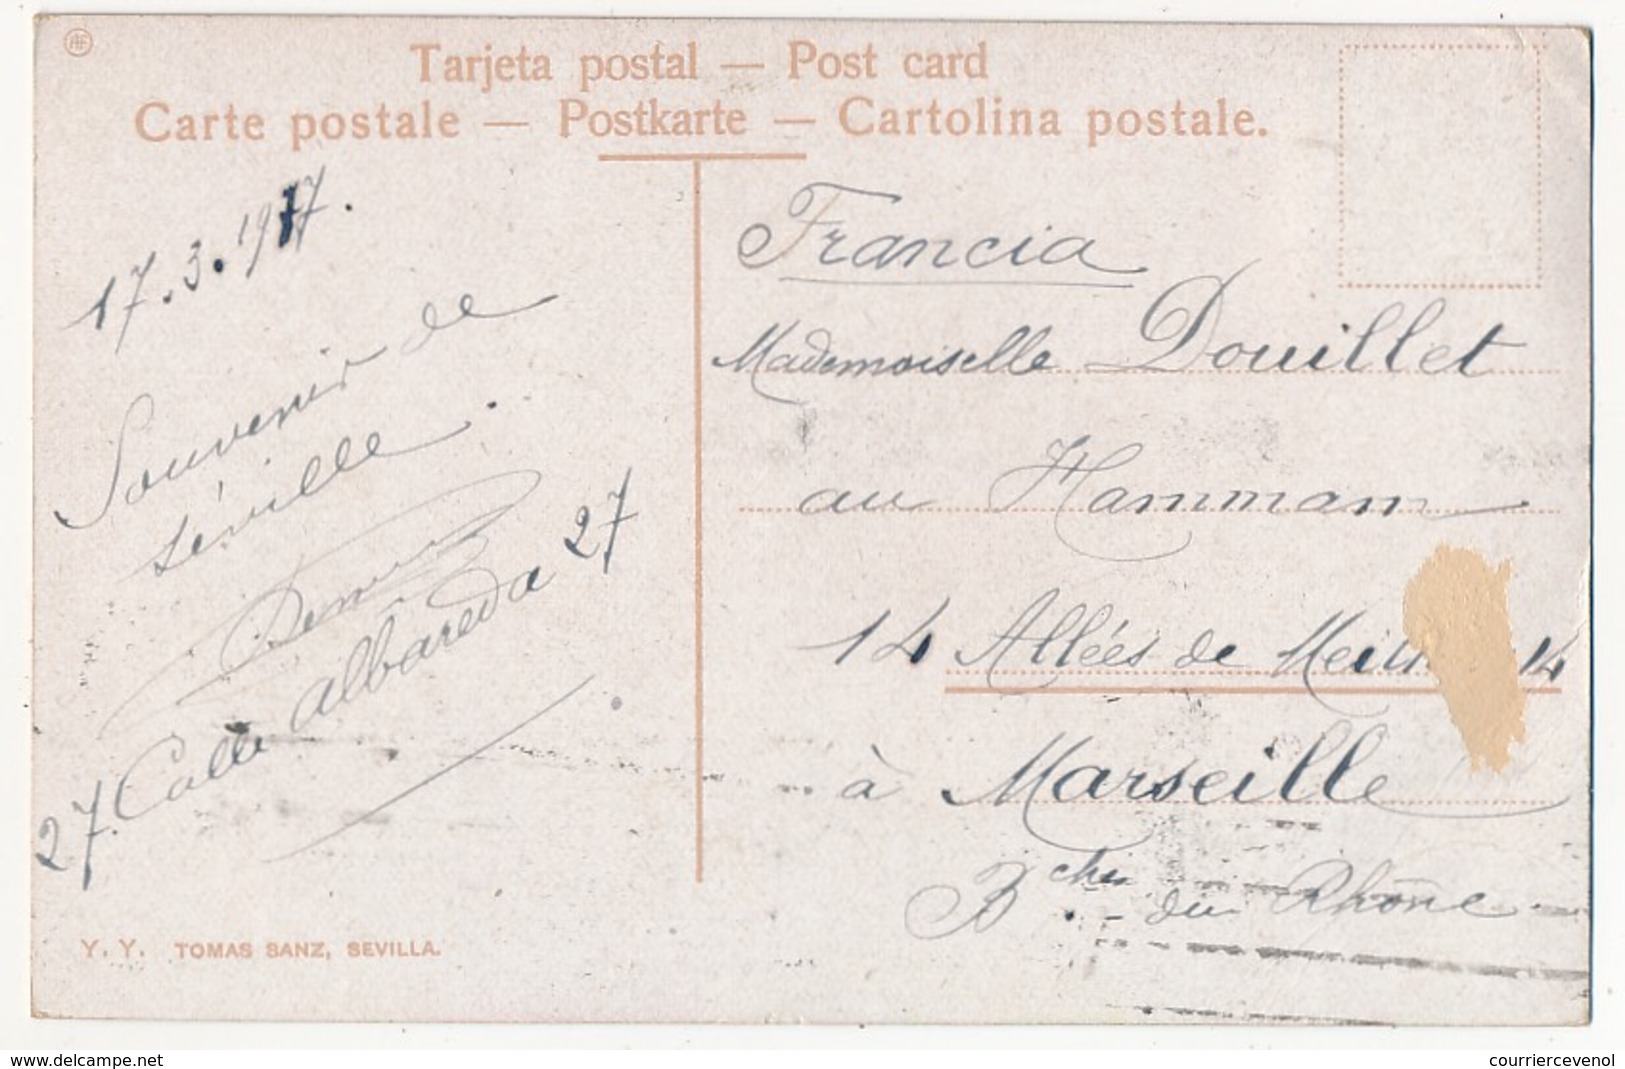 Tarjeta postal — Post card
Carte postale — Postkarte — Cartolina postale.
17.3.1917.
Souvenir de
Séville.
27. Calle Albareda 27
Y. Y. TOMAS SANZ, SEVILLA.
Francia
Mademoiselle Douillet
au Hammam
14 Allées de Meil 14
à Marseille
Bches du Rhône
www.delcampe.net
courriercevenol